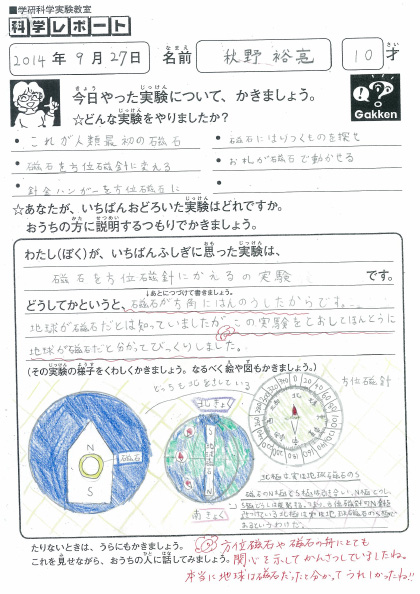 ■学研科学実験教室
科学レポート
2014年9月27日 名前 秋野 裕亮 10才
今日やった実験について、かきましょう。
☆どんな実験をやりましたか?
Gakken
・これが人類最初の磁石
・磁石にはりつくものを探せ
・磁石を方位磁針に変える
・お札が磁石で動かせる
・針金ハンガーを方位磁石に
☆あなたが、いちばんおどろいた実験はどれですか。
おうちの方に説明するつもりでかきましょう。
わたし(ぼく)が、いちばんふしぎに思った実験は、
磁石を方位磁針にかえるの実験 です。
↓あとにつづけて書きましょう。
どうしてかというと、磁石が方角にはんのうしたからです。
地球が磁石だとは知っていましたが、この実験をとおしてほんとうに
地球が磁石だと分かってびっくりしました。
(その実験の様子をくわしくかきましょう。なるべく絵や図もかきましょう。)
どっちも北をさしている
方位磁針
北きょく
N
磁石
S
S
地球磁石
N
南きょく
北極は実は地球磁石のS
磁石のN極とS極は引き合い、N極とN極、
たりないときは、うらにもかきましょう。
これを見せながら、おうちの人に話してみましょう。
方位磁石や磁石の針にとても
関心を示してかんさつしていましたね。
本当に地球は磁石だったと分かってうれしかったね!!